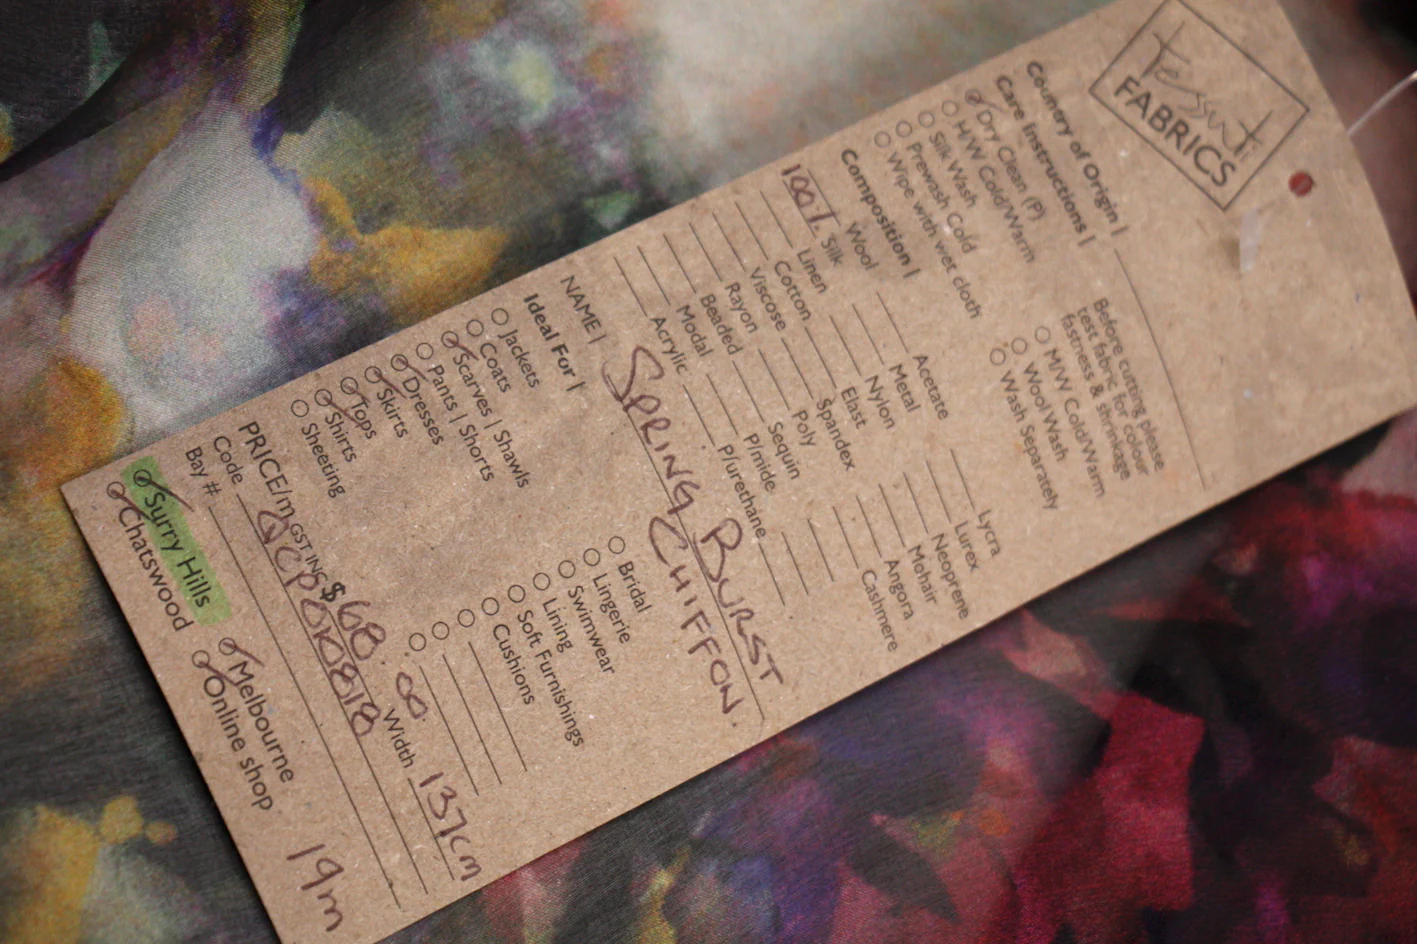 Tessuti
FABRICS
Country of Origin |
Care Instructions |
Dry Clean (P)
H/W Cold/Warm
Silk Wash
Prewash Cold
Wipe with wet cloth
Before cutting please
test fabric for colour
fastness & shrinkage
M/W Cold/Warm
Wool Wash
Wash Separately
Composition |
Wool
100% Silk
Linen
Cotton
Viscose
Rayon
Beaded
Modal
Acrylic
Acetate
Metal
Nylon
Elast
Spandex
Poly
Sequin
P/mide
P/urethane
Lycra
Lurex
Neoprene
Mohair
Angora
Cashmere
NAME | SPRING BURST
CHIFFON.
Ideal For |
Jackets
Coats
Scarves | Shawls
Pants | Shorts
Dresses
Skirts
Tops
Shirts
Sheeting
Bridal
Lingerie
Swimwear
Lining
Soft Furnishings
Cushions
PRICE/m GST INC $68.00. Width 137cm
Code
Bay #
Surry Hills
Chatswood
Melbourne
Online shop
19m